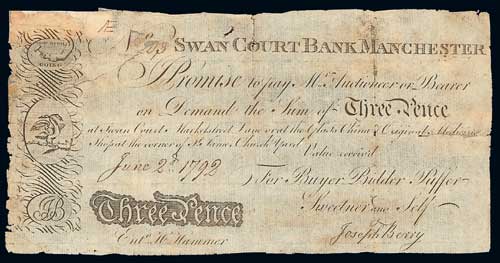 SWAN COURT BANK MANCHESTER
I Promise to pay Mr. Auctioneer or Bearer
on Demand the Sum of Three Pence
at Swan Court Marketstreet Lane or at the Glass China &
Shop at the corner of St. Anns Church Yard
Value received
June 2d. 1792
For Buyer Bidder Puffer
Three Pence
Sweetner and Self
Entd. H. Hammer
Joseph Berry